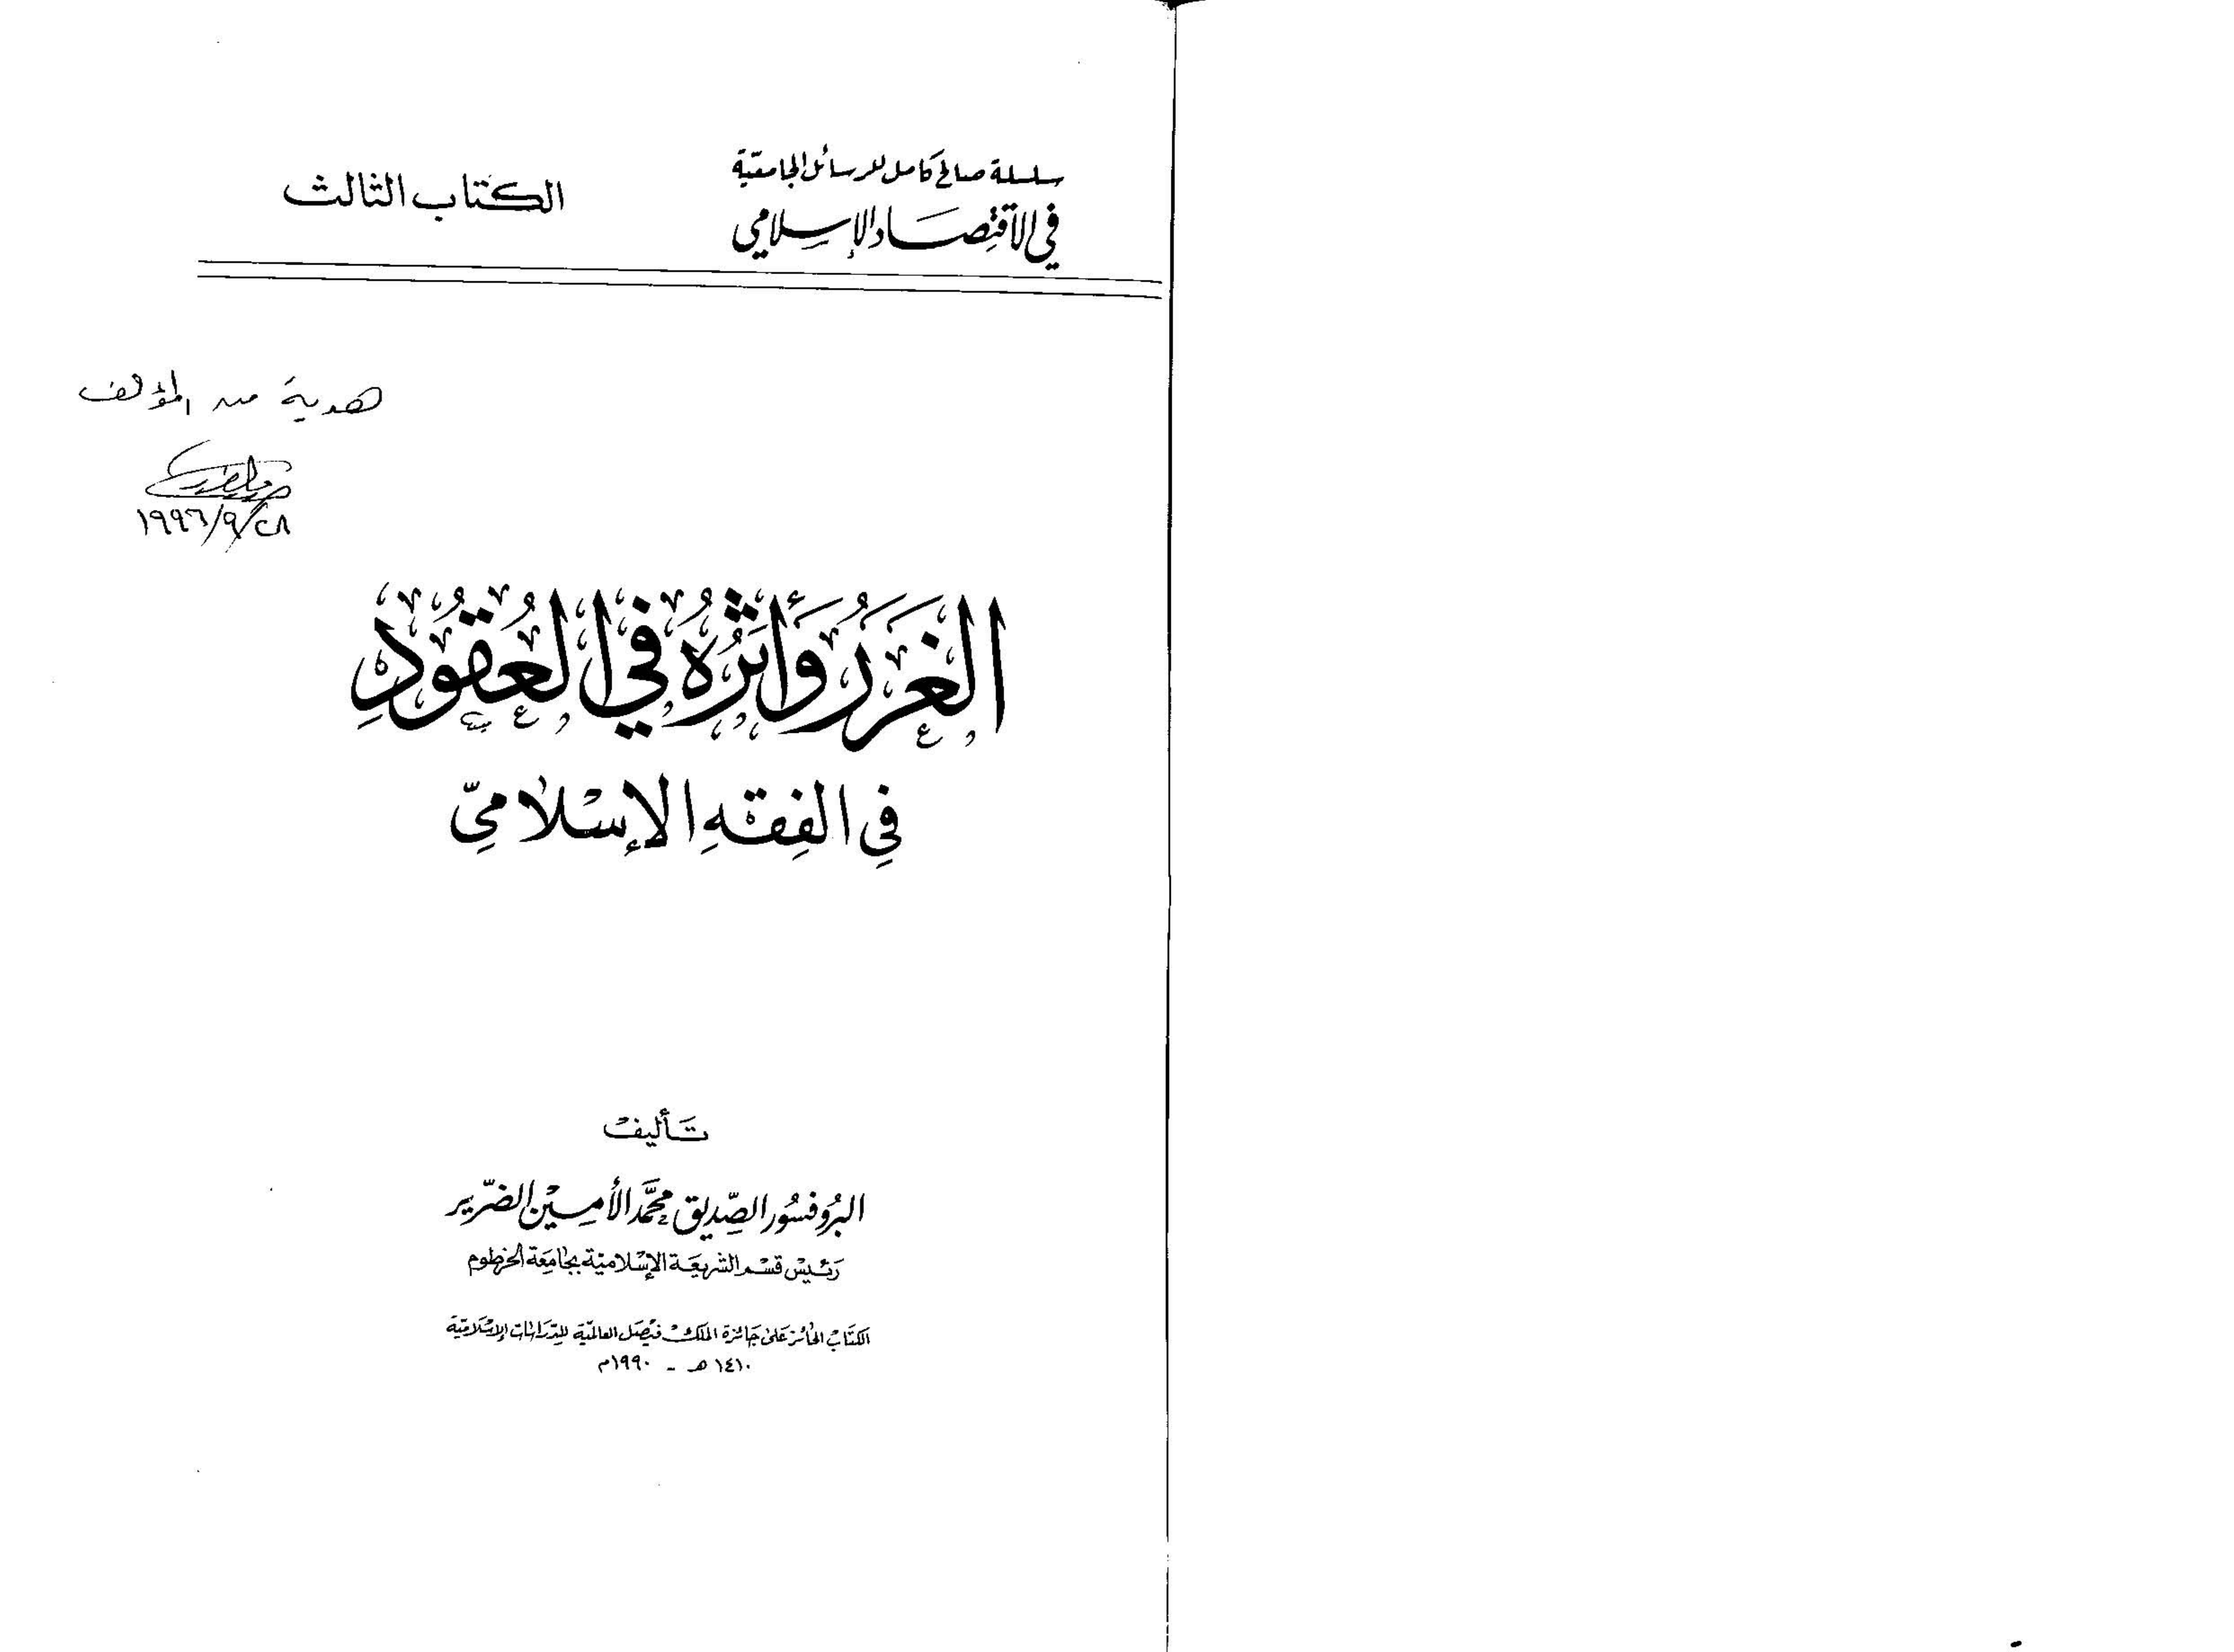 سلسلة صالح كامل للرسائل الجامعيّة
في الاقتِصَاد الإسلامي
الكتاب الثالث
هدية من المؤلف
١٩٩٦/٩/٢٨
الغَرَرُ وَأَثَرُهُ فِي العُقُودِ
فِي الفِقهِ الإسْلَامِيّ
تَأليفْ
البرُوفسُور الصِّديق محمَّد الأمِسين الضّرير
رَئيسْ قسْم الشريعَة الإسْلاميّة بجَامِعَة الخرطوم
الكتَابْ الحَائز عَلى جَائزة الملكْ فيْصَل العالميّة للدّرَاسَات الإسْلَاميّة
١٤١٠ هـ - ١٩٩٠م